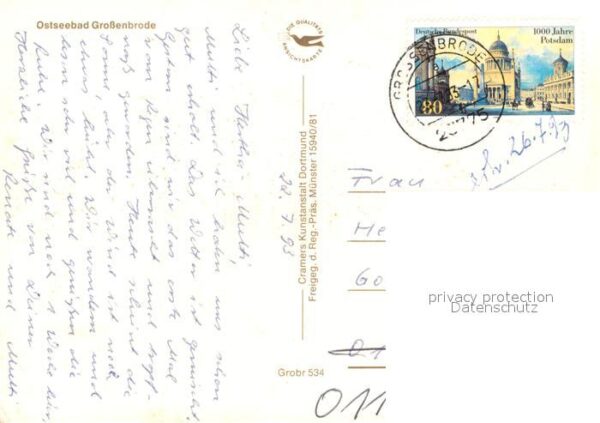 Ostseebad Großenbrode
Liebe Herthy, Mutti,
Mutti und ich haben uns schon
gut erholt. Das Wetter ist gemischt.
Gestern sind wir das erste Mal
vom Regen überrascht und
naß geworden. Heute scheint die
Sonne, aber der Wind ist noch
etwas kühl. Wir wandern und
lesen sehr viel und genießen die
Ruhe. Wir sind noch 1 Woche hier.
Herzliche Grüße von Deiner
Renate und Mutti
22.7.93
Cramers Kunstanstalt Dortmund
Freigeg. d. Reg.-Präs. Münster 15940/81
Grobr 534
DIE QUALITÄTS
ANSICHTSKARTE
Deutsche Bundespost
1000 Jahre
Potsdam
80
GROSSENBRODE
23775
26.7.93
Frau
He
Go
011
privacy protection
Datenschutz